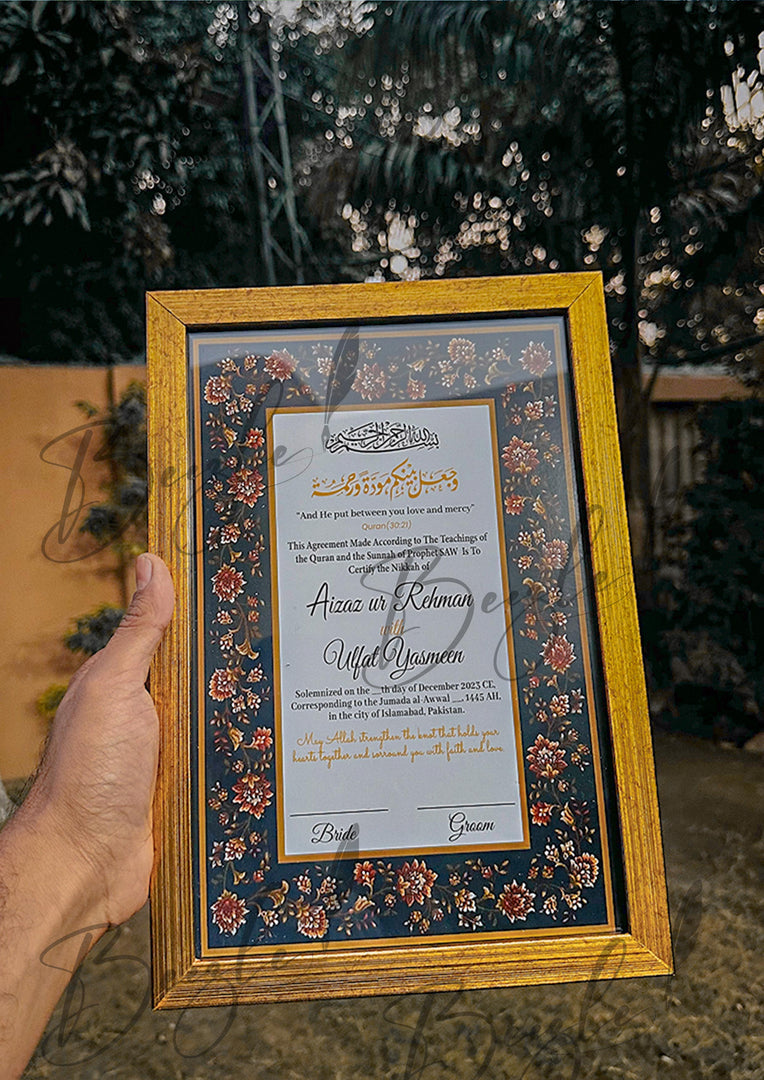 بسم الله الرحمن الرحيم
وجعل بينكم مودة ورحمة
"And He put between you love and mercy"
Quran(30:21)
This Agreement Made According to The Teachings of
the Quran and the Sunnah of Prophet SAW Is To
Certify the Nikkah of
Aizaz ur Rehman
with
Ulfat Yasmeen
Solemnized on the __th day of December 2023 CE,
Corresponding to the Jumada al-Awwal __ 1445 AH,
in the city of Islamabad, Pakistan.
May Allah strengthen the knot that holds your
hearts together and sorround you with faith and love.
Bride Groom
Beezle